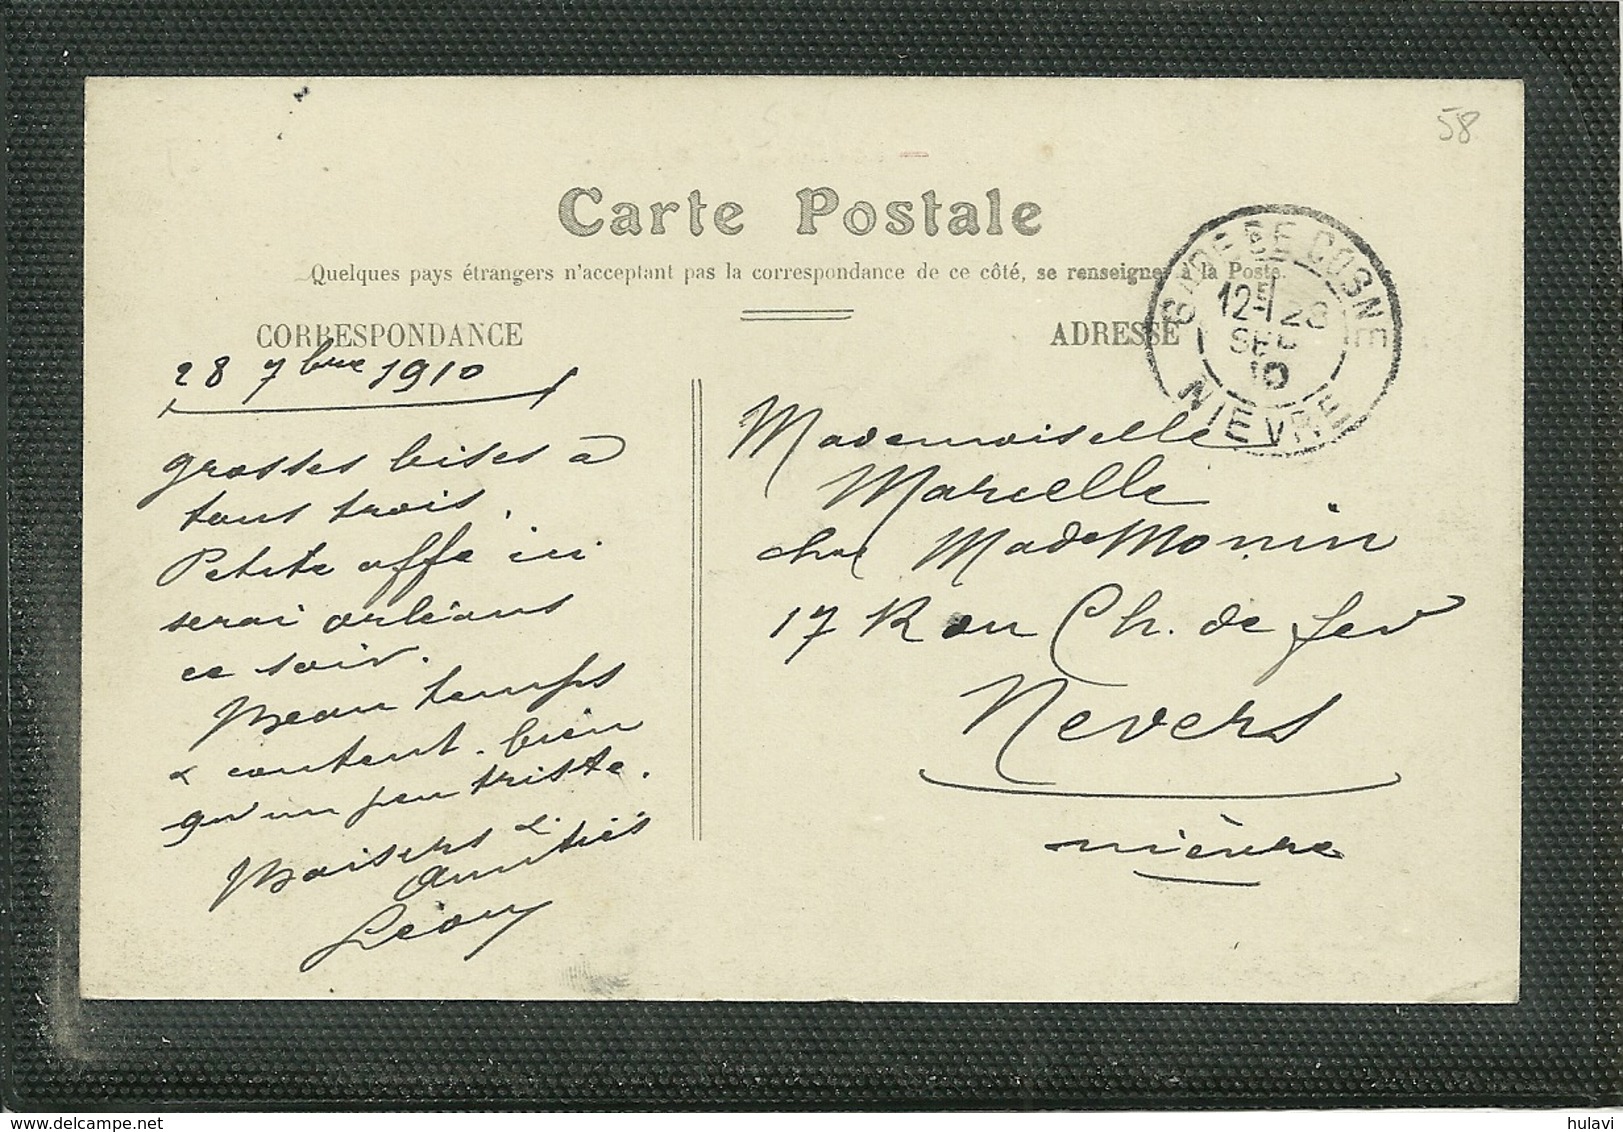 58
Carte Postale
Quelques pays étrangers n'acceptant pas la correspondance de ce côté, se renseigner à la Poste.
CORRESPONDANCE
ADRESSE
GARE DE COSNE
12 28
SEPT
10
NIEVRE
28 7bre 1910
grosses bises à
tous trois.
Petite affe ici
serai orléans
ce soir.
Beau temps
& content. bien
qu'un peu triste.
Baisers &
Amitiés
Léon
Mademoiselle
Marcelle
chez Made Monin
17 R du Ch. de fer
Nevers
nièvre
hulavi